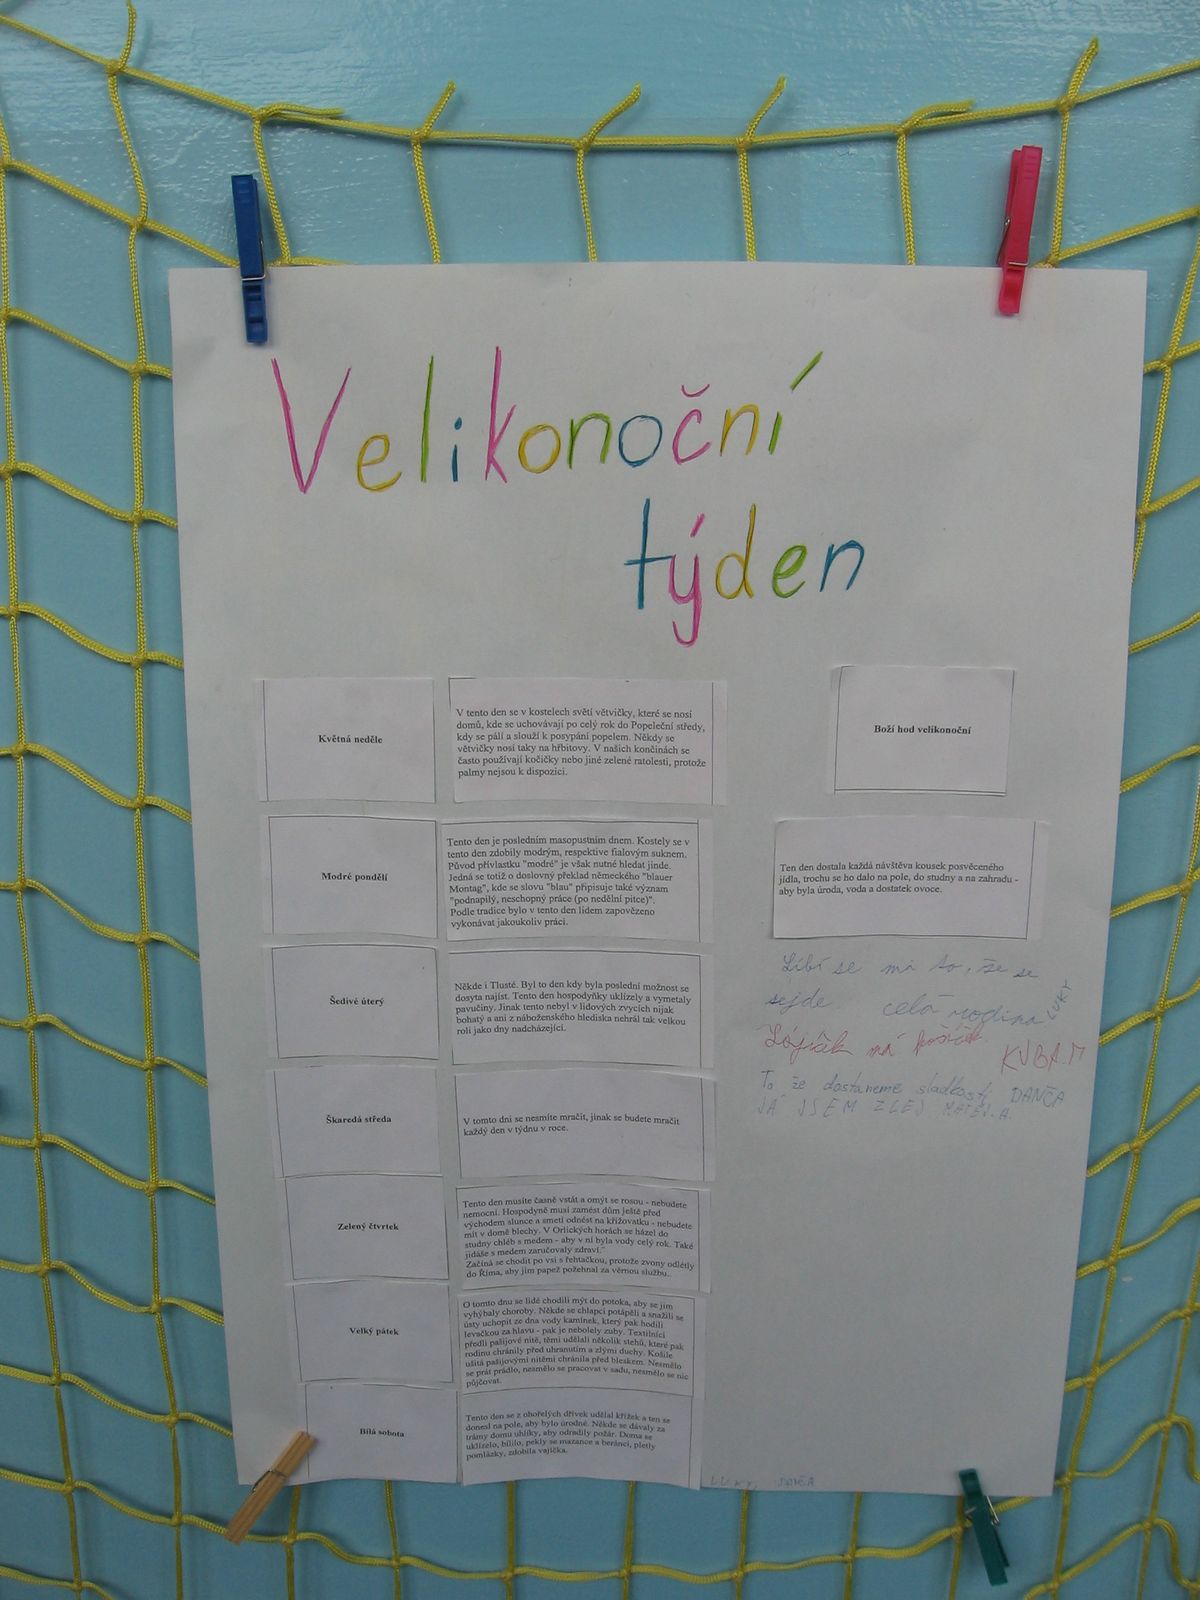 Velikonoční
týden
Květná neděle
V tento den se v kostelech světí větvičky, které se nosí
domů, kde se uchovávají po celý rok do Popeleční středy,
kdy se pálí a slouží k posypání popelem. Někdy se
větvičky nosí taky na hřbitovy. V našich končinách se
často používají kočičky nebo jiné zelené ratolesti, protože
palmy nejsou k dispozici.
Modré pondělí
Tento den je posledním masopustním dnem. Kostely se v
tento den zdobily modrým, respektive fialovým suknem.
Původ přívlastku "modré" je však nutné hledat jinde.
Jedná se totiž o doslovný překlad německého "blauer
Montag", kde se slovu "blau" připisuje také význam
"podnapilý, neschopný práce (po nedělní pitce)".
Podle tradice bylo v tento den lidem zapovězeno
vykonávat jakoukoliv práci.
Šedivé úterý
Někde i Tlusté. Byl to den kdy byla poslední možnost se
dosyta najíst. Tento den hospodyňky uklízely a vymetaly
pavučiny. Jinak tento nebyl v lidových zvycích nijak
bohatý a ani z náboženského hlediska nehrál tak velkou
roli jako dny nadcházející.
Škaredá středa
V tomto dni se nesmíte mračit, jinak se budete mračit
každý den v týdnu v roce.
Zelený čtvrtek
Tento den musíte časně vstát a omýt se rosou - nebudete
nemocní. Hospodyně musí zamést dům ještě před
východem slunce a smetí odnést na křižovatku - nebudete
mít v domě blechy. V Orlických horách se házel do
studny chléb s medem - aby v ní byla vody celý rok. Také
jidáše s medem zaručovaly zdraví."
Začíná se chodit po vsi s řehtačkou, protože zvony odlétly
do Říma, aby jim papež požehnal za věrnou službu.
Velký pátek
O tomto dnu se lidé chodili mýt do potoka, aby se jim
vyhýbaly choroby. Někde se chlapci potápěli a snažili se
ústy uchopit ze dna vody kamínek, který pak hodili
levačkou za hlavu - pak je nebolely zuby. Textilníci
předli pašijové nitě, těmi udělali několik stehů, které pak
rodinu chránily před uhranutím a zlými duchy. Košile
ušitá pašijovými nitěmi chránila před bleskem. Nesmělo
se prát prádlo, nesmělo se pracovat v sadu, nesmělo se nic
půjčovat.
Bílá sobota
Tento den se z ohořelých dřívek udělal křížek a ten se
donesl na pole, aby bylo úrodné. Někde se dávaly za
trámy domu uhlíky, aby odradily požár. Doma se
uklízelo, bílilo, pekly se mazance a beránci, pletly
pomlázky, zdobila vajíčka.
Boží hod velikonoční
Ten den dostala každá návštěva kousek posvěceného
jídla, trochu se ho dalo na pole, do studny a na zahradu -
aby byla úroda, voda a dostatek ovoce.
Líbí se mi to, že se
sejde celá rodina LUKY
má košíček KUBA.M
To že dostaneme sladkosti DANČA
JÁ JSEM ZLEJ MATĚJ.A.
LUKY, DANČA